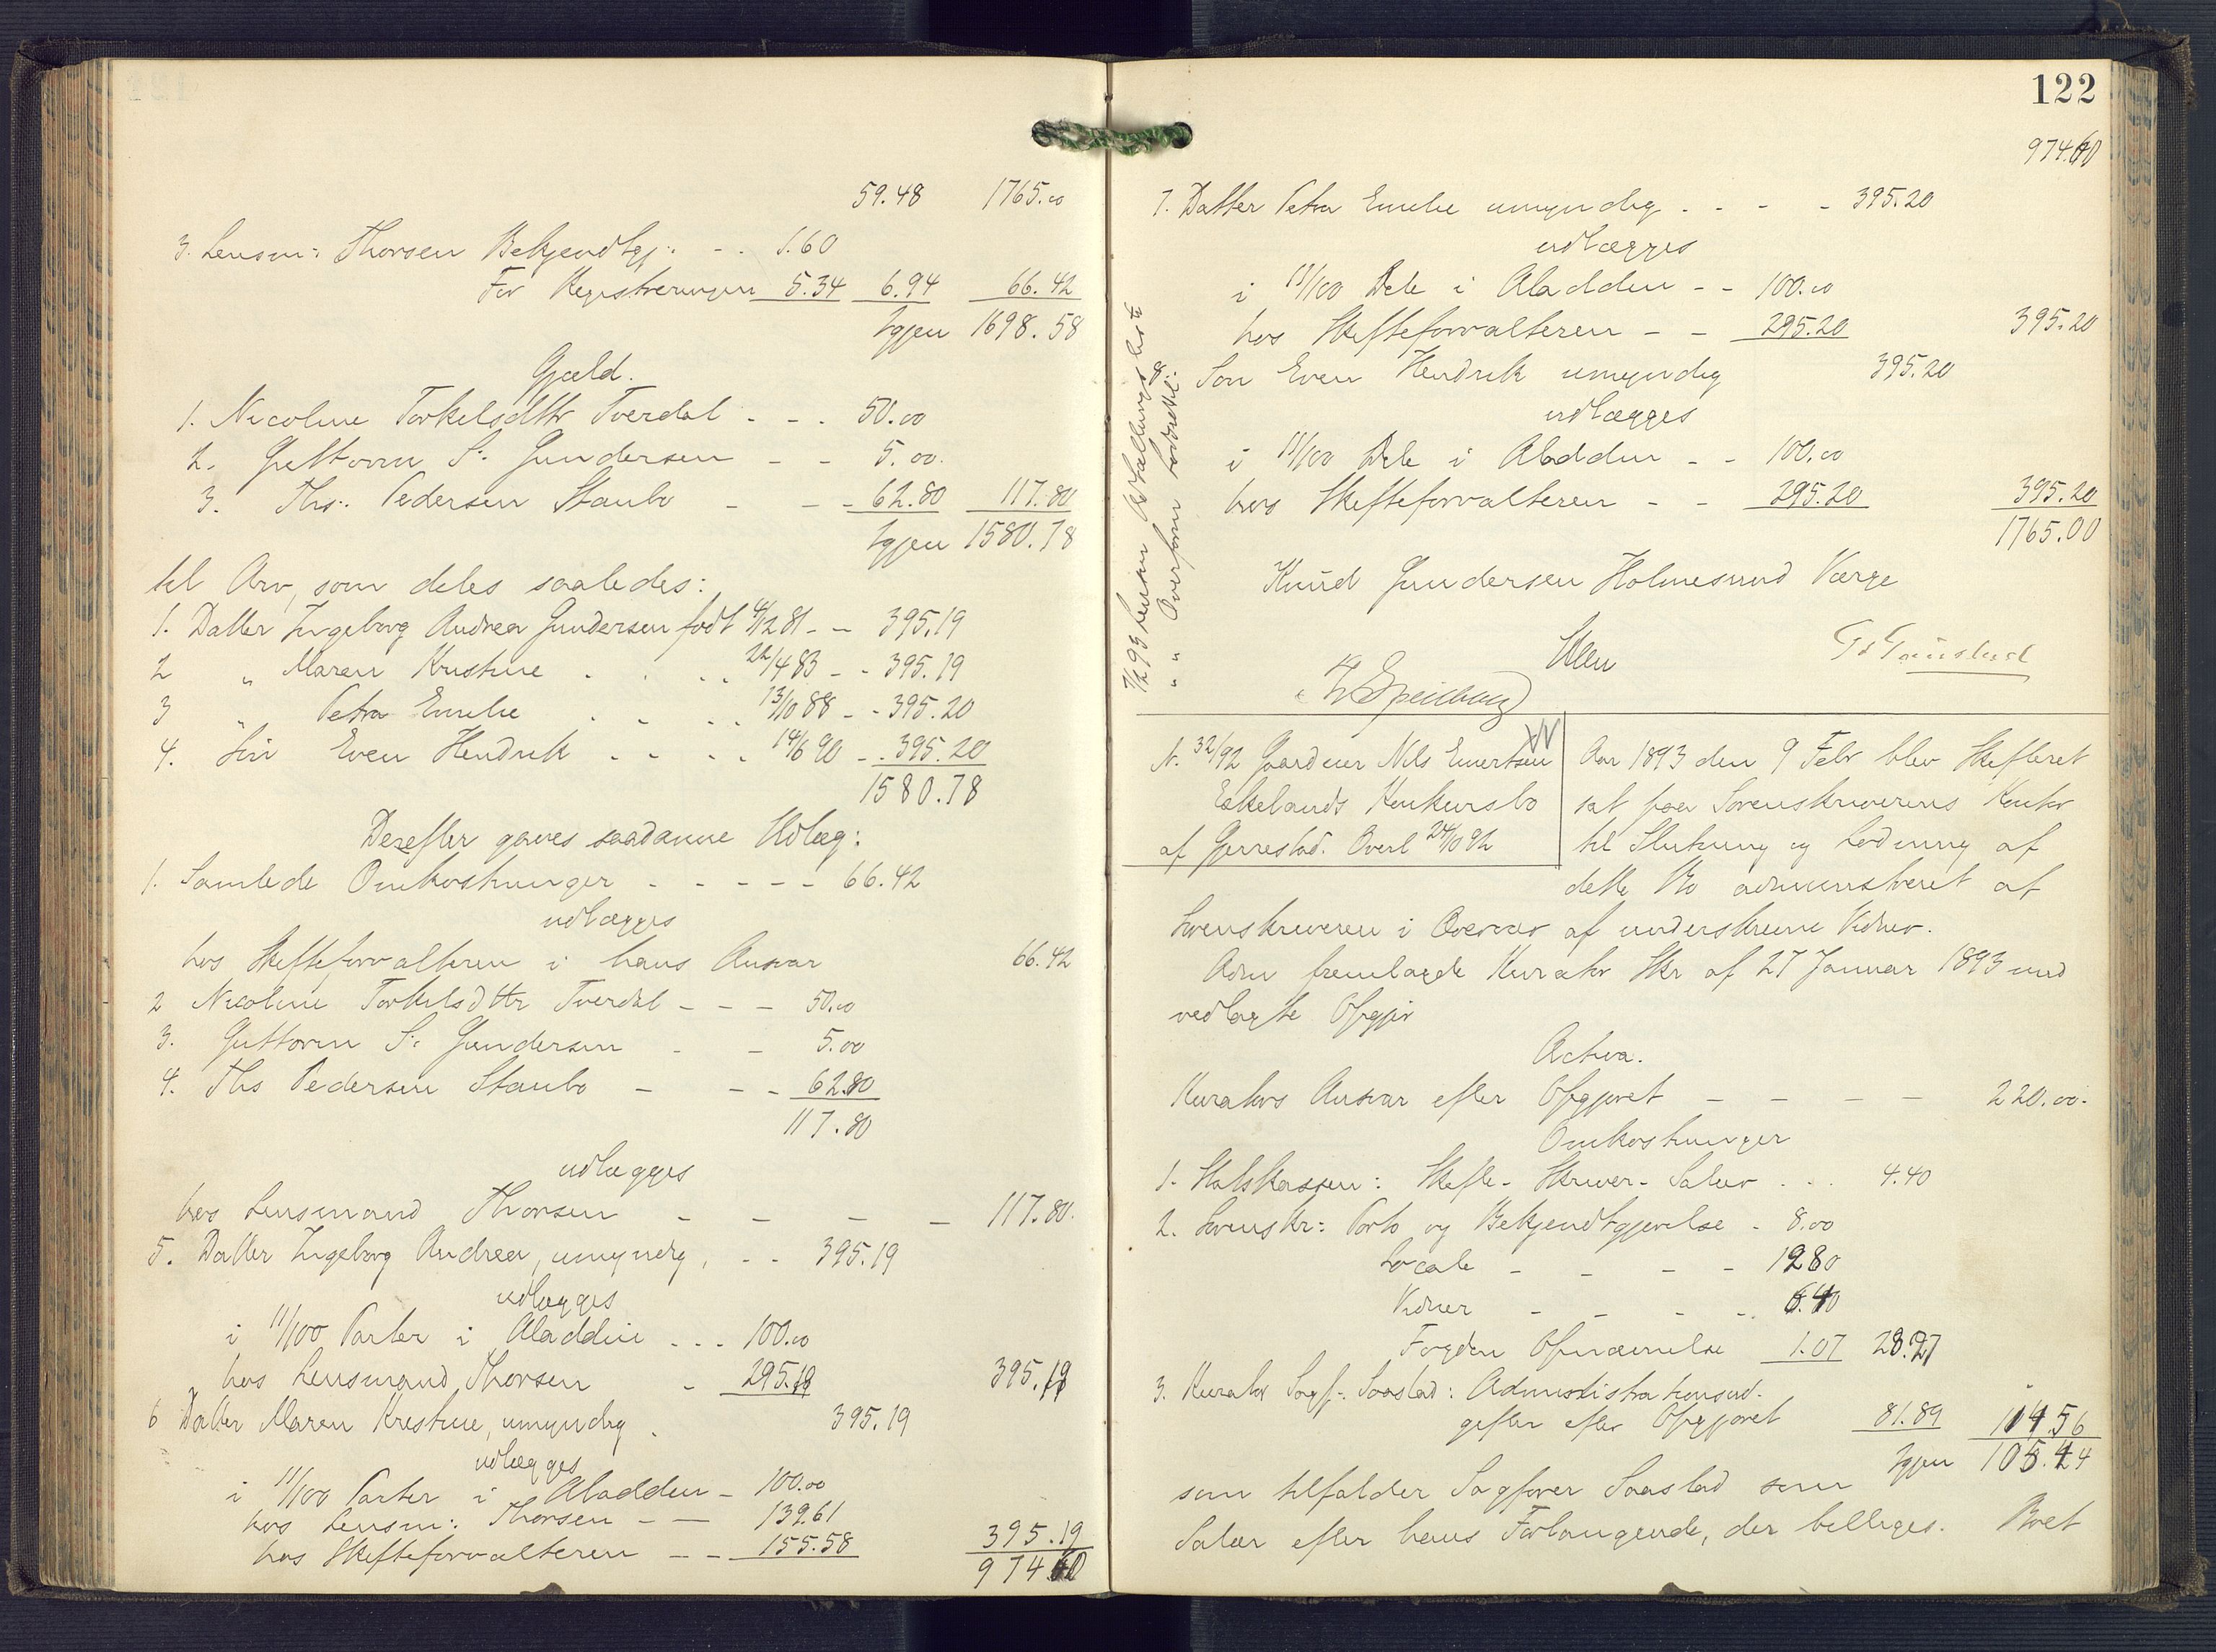 59.48 1765.00
3. Lensm: Thorsen Bekjendtgj: - - 1.60
For Registreringen 5.34 6.94 66.42
Igjen 1698.58
Gjæld.
1. Nicoline Torkelsdttr Tverdal - - . 50.00
2. Guttorm S. Gundersen - - 5.00
3. Ths: Pedersen Staubo - - - 62.80 117.80
Igjen 1580.78
til Arv, som deles saaledes:
1. Datter Ingeborg Andrea Gundersen født 4/12 81 - - 395.19
2 " Maren Kristine . . . . 22/4 83 - - 395.19
3 " Petra Emelie . . . . 13/10 88 - - 395.20
4. Søn Even Hendrik . . . . 14/6 90 - . 395.20
1580.78
Derefter gaves saadanne Udlæg:
1. Samlede Omkostninger - - - - - 66.42
udlægges
hos Skifteforvalteren i hans Ansvar 66.42
2 Nicoline Torkelsdttr Tverdal - - - 50.00
3. Guttorm S. Gundersen - - 5.00
4. Ths Pedersen Staubo - - - 62.80
117.80
udlægges
hos Lensmand Thorsen - - - - 117.80.
5. Datter Ingeborg Andrea, umyndig, - - 395.19
udlægges
i 11/100 Parter i Aladdin - - - 100.00
hos Lensmand Thorsen - 295.19 395.19
6 Datter Maren Kristine, umyndig . 395.19
udlægges
i 11/100 Parter i Aladden - 100.00
hos Lensm: Thorsen - - 139.61
hos Skifteforvalteren - - 155.58 395.19
974.60
122
974.60
7. Datter Petra Emelie umyndig . - - - 395.20
udlægges
i 11/100 Dele i Aladden - - 100.00
hos Skifteforvalteren - - 295.20 395.20
8. Søn Even Hendrik umyndig 395.20
udlægges
i 11/100 Dele i Aladden - - 100.00
hos Skifteforvalteren - - 295.20 395.20
1765.00
Knud Gundersen Holmesund Værge
N. 32/92 Gaardeier Nils Evertsen
Eskelands Konkursbo
af Gjerrestad. Overl 24/10 92
Aar 1893 den 9 Febr blev Skifteret
sat paa Sorenskriverens Kontor
til Slutning og Lodning af
dette Bo administreret af
Sorenskriveren i Overvær af underskrevne Vidner.
Adm fremlagde Kurator Skr af 27 Januar 1893 med
vedlagte Opgjør
Activa.
Kurators Ansvar efter Opgjøret - - - - 220.00.
Omkostninger
1. Statskassen: Skifte- Skriver- Salær . . . 4.40
2. Sorenskr: Porto og Bekjendtgjørelse - 8.00
Locale - - - - 12.80
Vidner - - - - 6.40
Fogden Opnævnelse 1.07 28.27
3. Kurator Sagf: Saastad: Administrationsud-
gifter efter Opgjøret 81.89 114.56
Igjen 105.44
som tilfalder Sagfører Saastad som
Salær efter hans Forlangende, der billiges. Boet